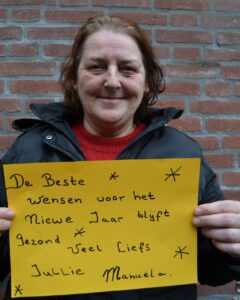 De Beste
Wensen voor het
Niewe Jaar blijft
Gezond Veel Liefs
Jullie Manuela.